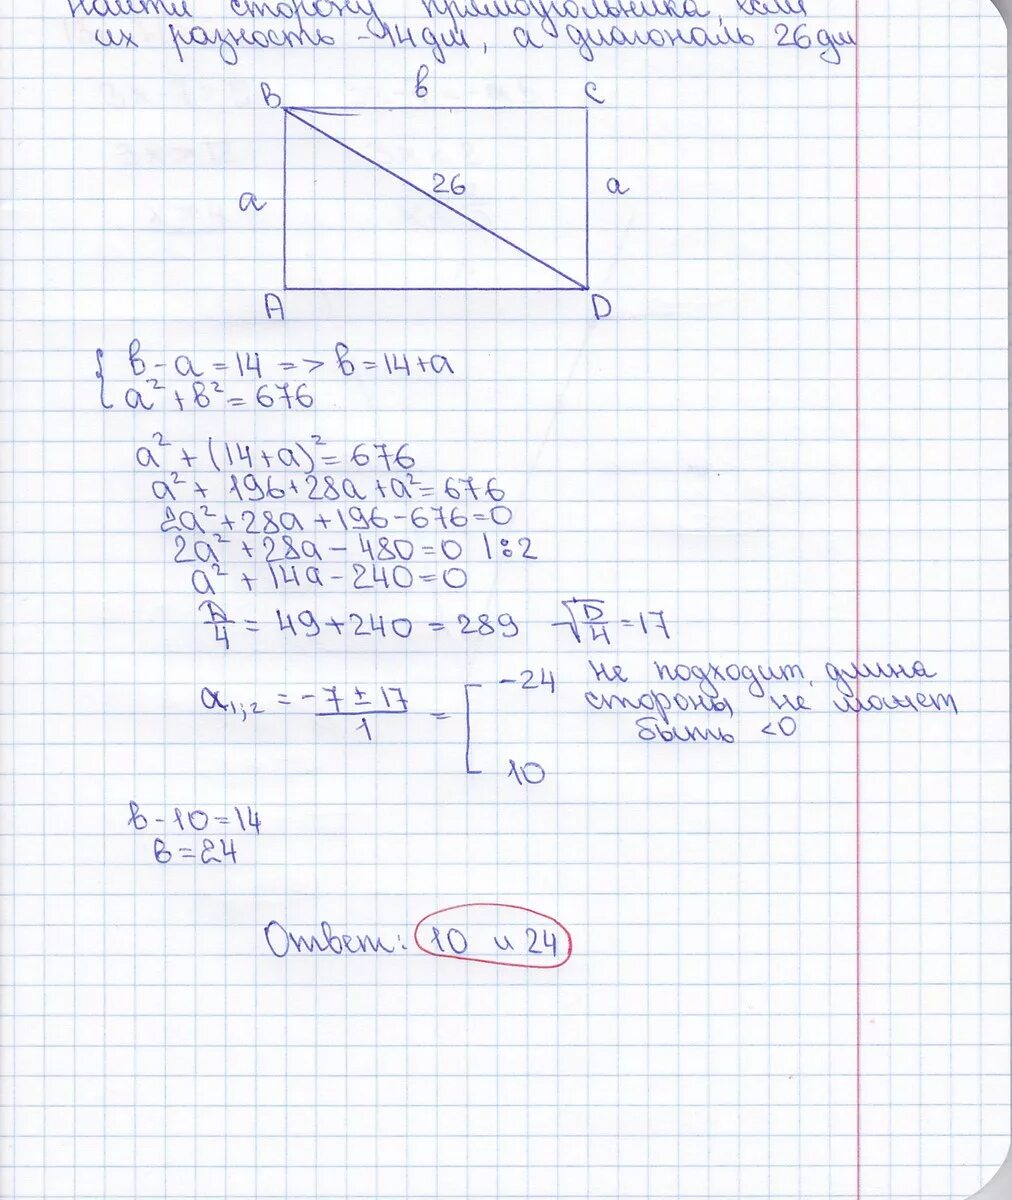 Найти сторону прямоугольника, если
их разность - 14 дм, а диагональ 26 дм
B в C
a 26 a
A D
в - a = 14 => в = 14 + a
a² + в² = 676
a² + (14 + a)² = 676
a² + 196 + 28a + a² = 676
2a² + 28a + 196 - 676 = 0
2a² + 28a - 480 = 0 | : 2
a² + 14a - 240 = 0
D/4 = 49 + 240 = 289 √D/4 = 17
a₁;₂ = -7 ± 17 / 1 = [ -24 не подходит, длина
стороны не может
быть <0
10
в - 10 = 14
в = 24
Ответ: 10 и 24